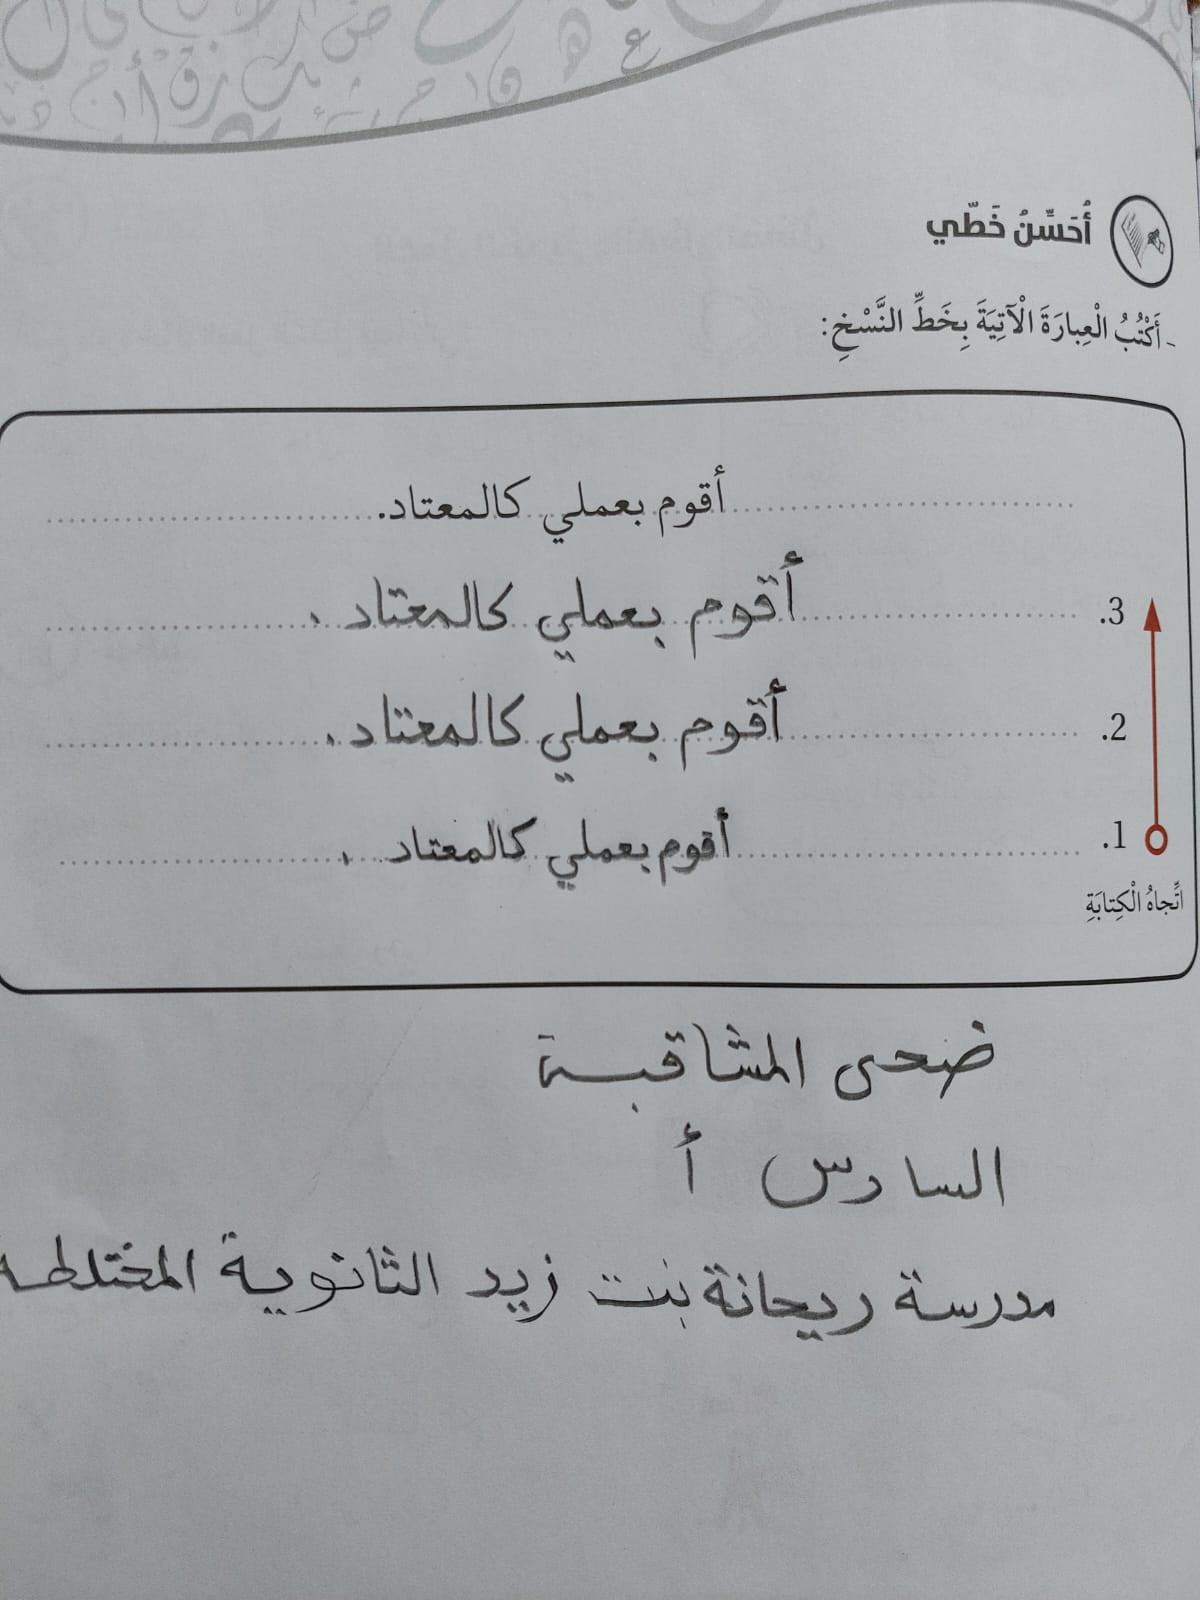 أُحَسِّنُ خَطّي
- أَكْتُبُ الْعِبارَةَ الْآتِيَةَ بِخَطِّ النَّسْخِ:
أقوم بعملي كالمعتاد.
3. أقوم بعملي كالمعتاد.
2. أقوم بعملي كالمعتاد.
1. أقوم بعملي كالمعتاد.
اتِّجاهُ الْكِتابَةِ
ضحى المشاقبة
السادس أ
مدرسة ريحانة بنت زيد الثانوية المختلطة